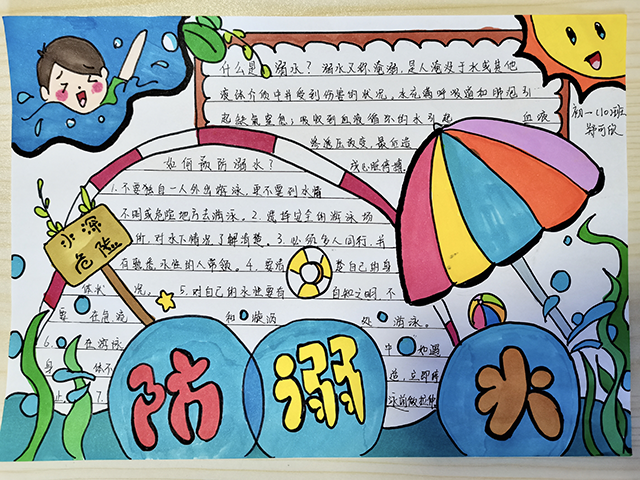 什么是溺水？溺水又称淹溺，是人淹没于水或其他
液体介质中并受到伤害的状况，水充满呼吸道和肺泡引
起缺氧窒息；吸收到血液循环的水引起 血液
渗透压改变、最后造
成
初一（10）班
郑可欣
如何预防溺水？
1.不要独自一人外出游泳，更不要到水
不明或危险地方去游泳。2.选择安全的游泳场
所，对水下情况了解清楚。3.必须多人同行，并
有熟悉水性的人带领。4.要清楚自己的身
体状况。5.对自己的水性要有自知之明，不
在急流和漩涡处游泳。
6.在游泳中如遇
身体不适，立即
止 7. 泳前做
水深
危险
防溺水